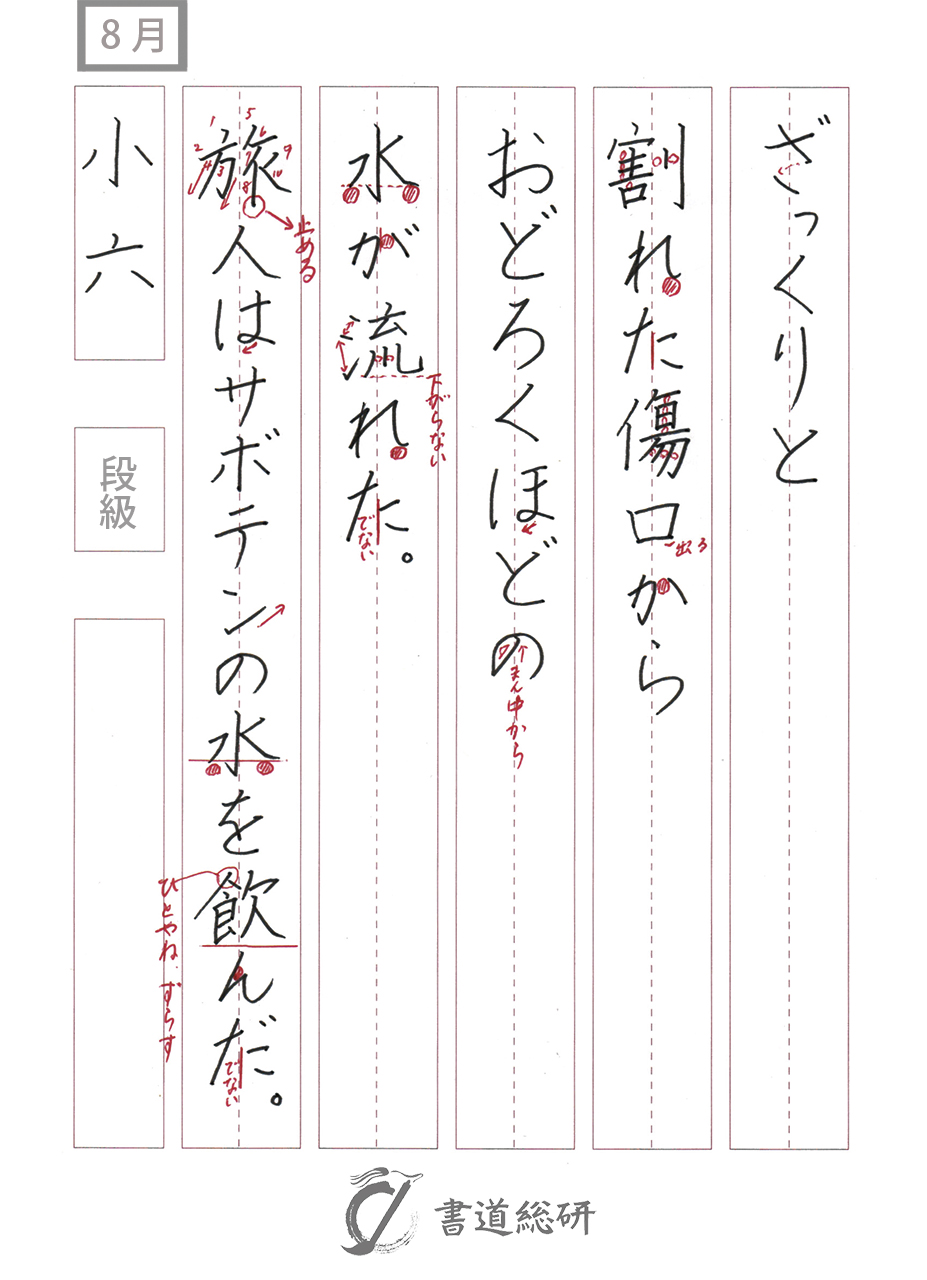 8月
ざっくりと
割れた傷口から
出る
おどろくほどの
まん中から
水が流れた。
下がらない
でない
旅人はサボテンの水を飲んだ。
1 2 3 4 5 6 7 8 9 10
止める
ひとやね.ずらす
でない
小六
段級
書道総研